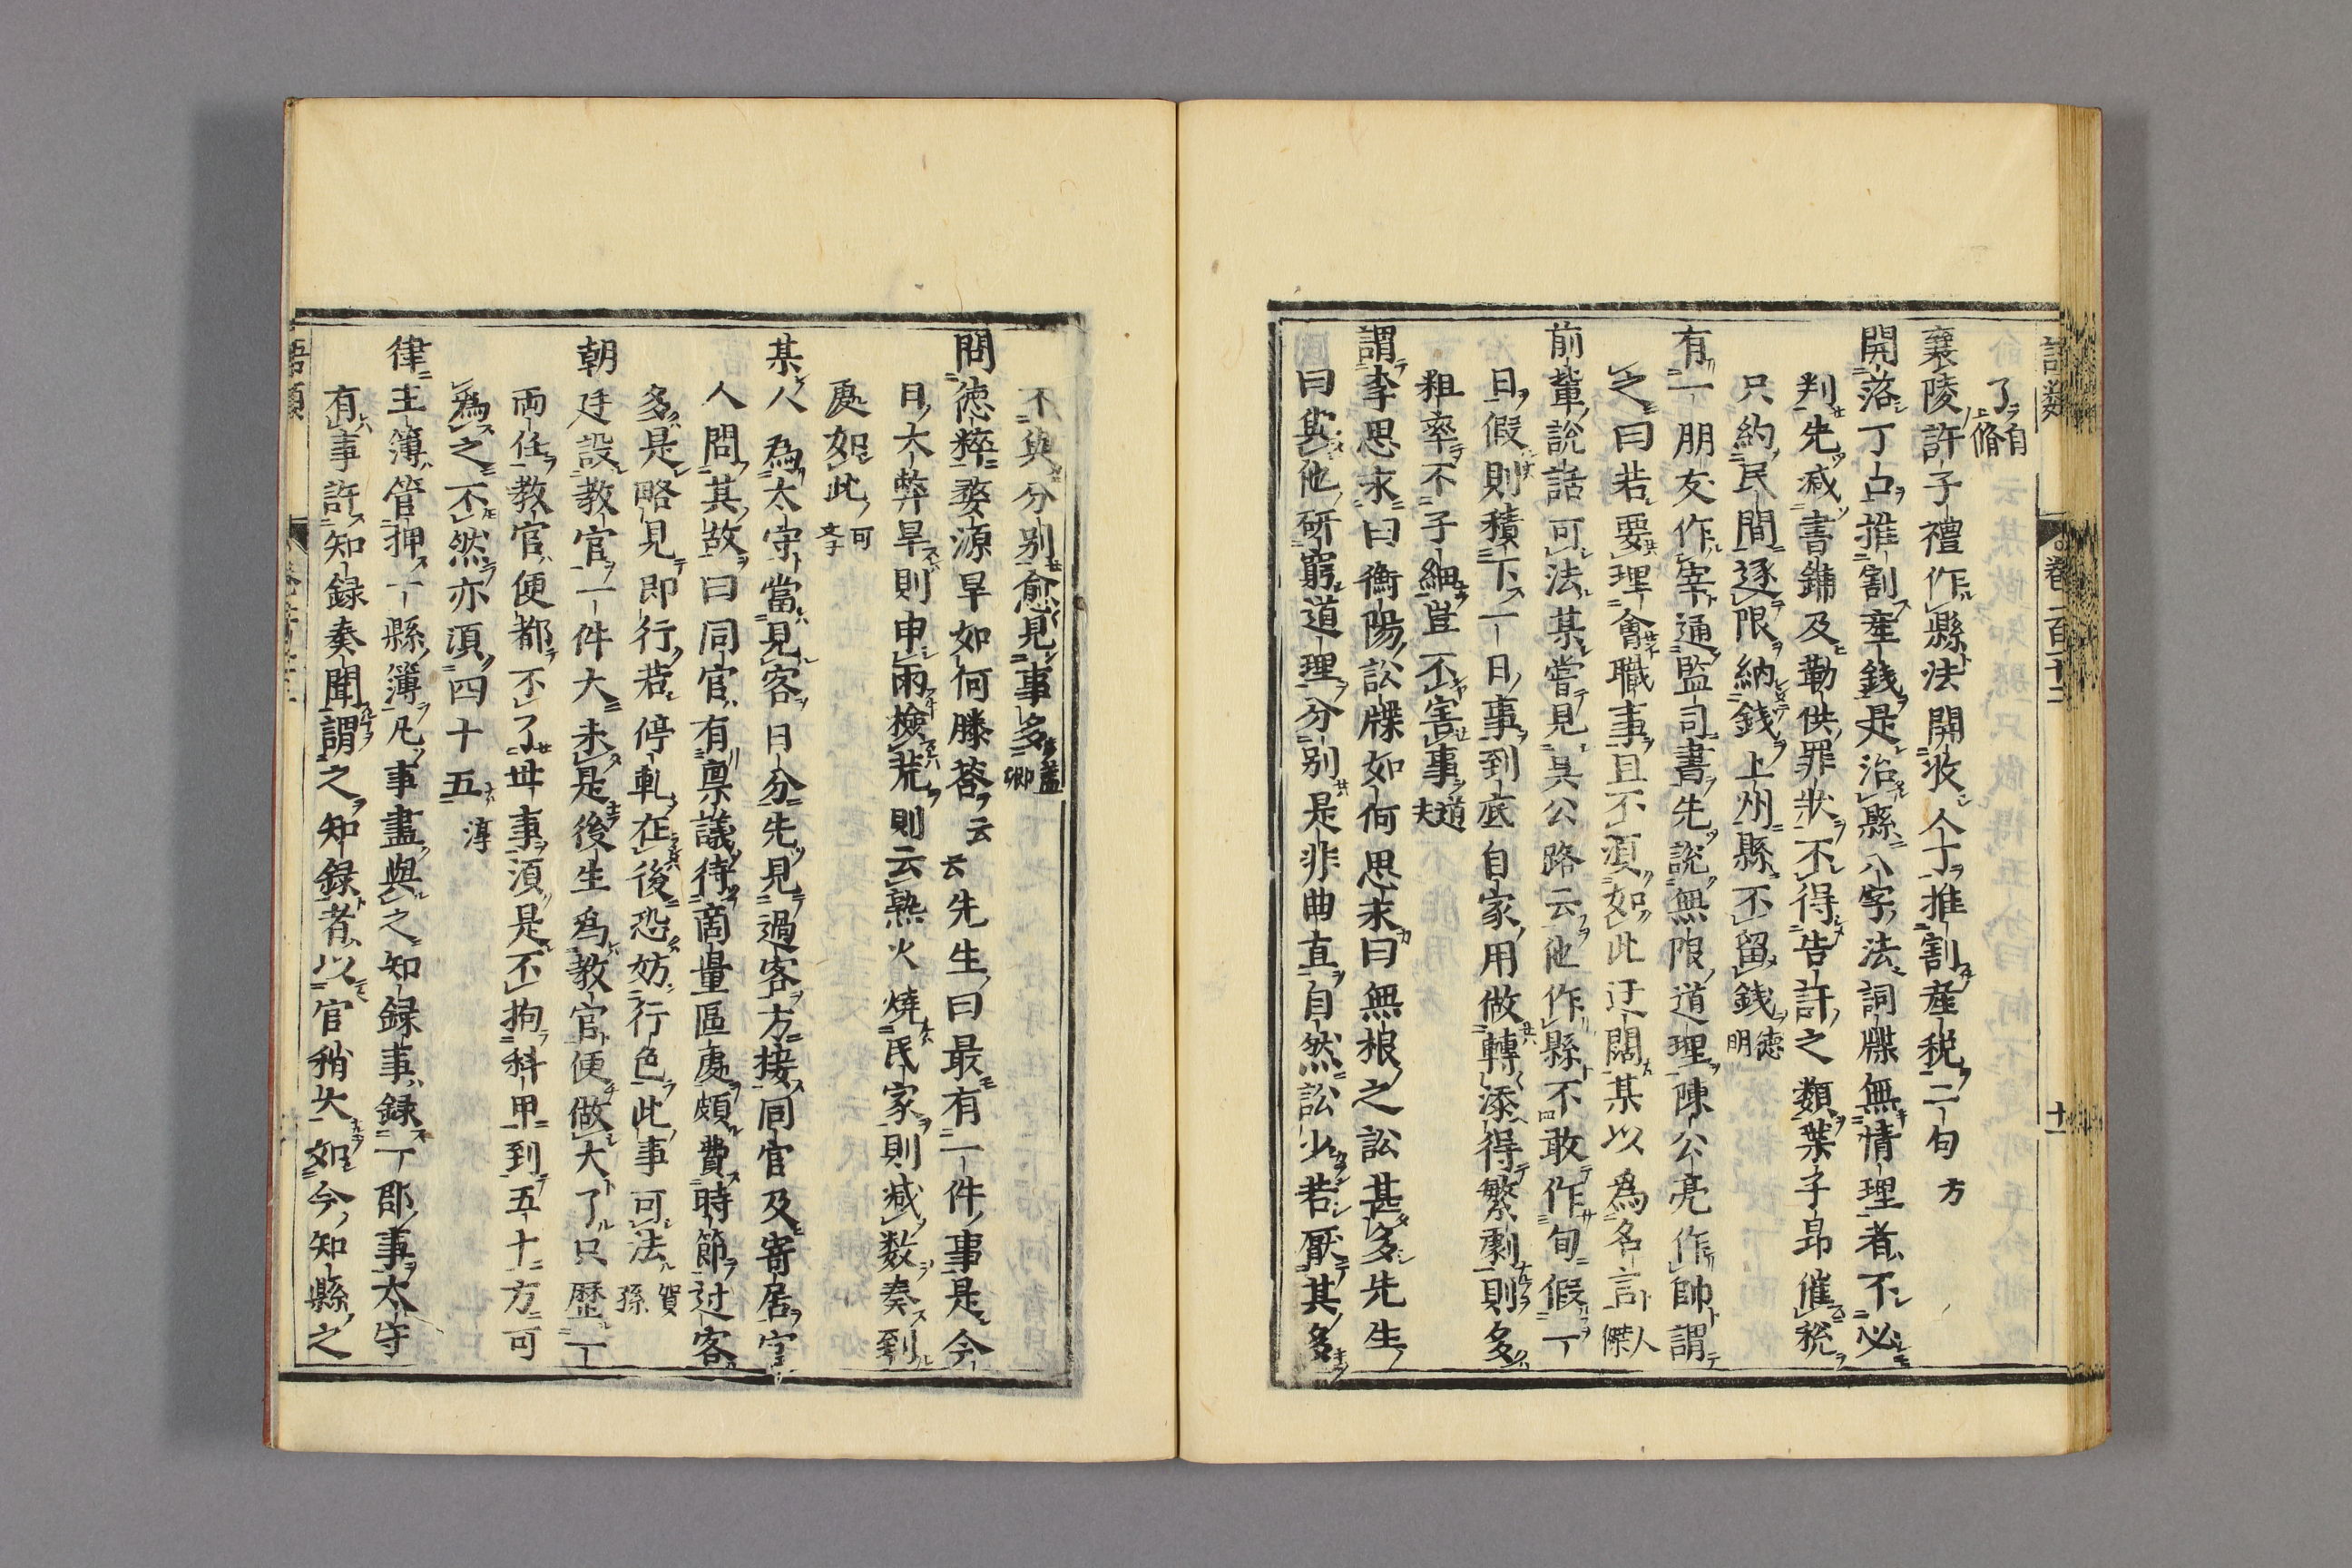 語類 卷一百十二 十一
了 自脩
襄陵許子禮作縣法開收人丁推割産税二句 方
開落丁占推割産錢是治縣八字法詞牒無情理者不必
判先减書鋪及勒供罪狀不得告訐之類葉子昂催税
只約民間逐限納錢上州縣不留錢 德明
有一朋友作宰通監司書先説無限道理陳公亮作帥謂
之曰若要理會職事且不須如此迂闊某以爲名言 人傑
前輩説話可法某嘗見吴公路云他作縣不敢作旬假一
日假則積下一日事到底自家用做轉添得繁劇則多
粗率不子細豈不害事 道夫
謂李思永曰衡陽訟牒如何思永曰無根之訟甚多先生
曰與他研窮道理分别是非曲直自然訟少若厭其多
不與分别愈見事多 蓋卿
問德粹婺源旱如何滕荅云云先生曰最有一件事是今
日大弊旱則申雨檢荒則云熟火燒民家則减数奏到
處如此 可學
某人爲太守當見客日分先見過客方接同官及寄居官
人問其故曰同官有禀議待商量區處頗費時節过客
多是略見即行若停軋在後恐妨行色此事可法 賀孫
朝廷設教官一件大未是後生爲教官便做大了只歷一
両任教官便都不了世事須是不拘科甲到五十方可
爲之不然亦須四十五 淳
律主簿管押一縣簿凡事盡與之知録事録一郡事太守
有事許知録奏聞謂之知録者以官稍大如今知縣之
語類